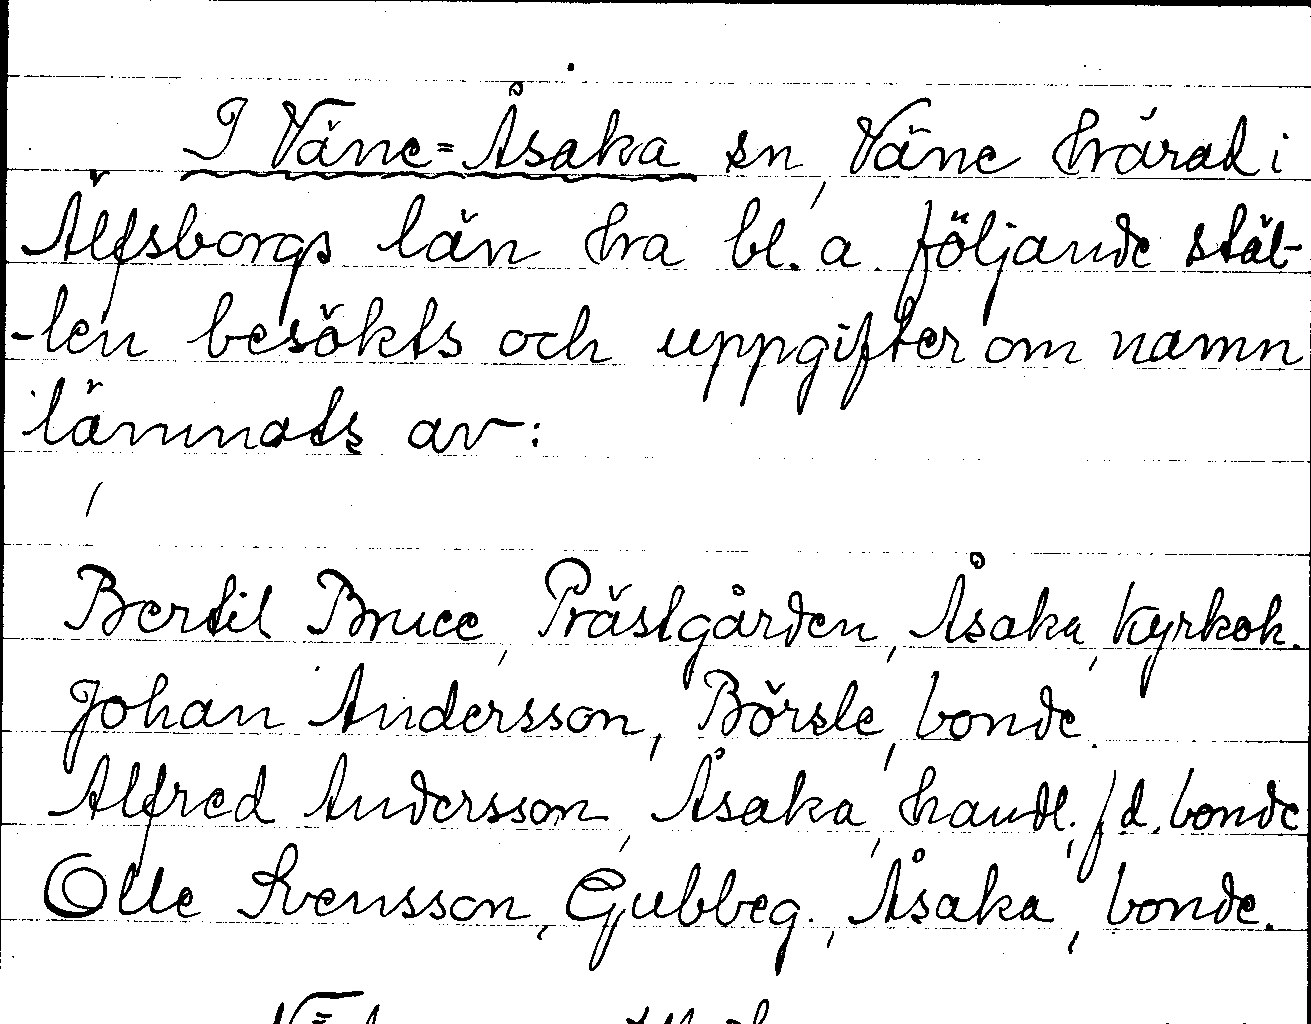 I Väne-Åsaka sn, Väne härad i
Älfsborgs län ha bl. a. följande stäl-
-len besökts och uppgifter om namn
lämnats av:
Bertil Bruce, Prästgården, Åsaka, kyrkoh.
Johan Andersson, Börsle, bonde.
Alfred Andersson, Åsaka, handl., f d. bonde
Olle Svensson, Gubbeg., Åsaka, bonde.